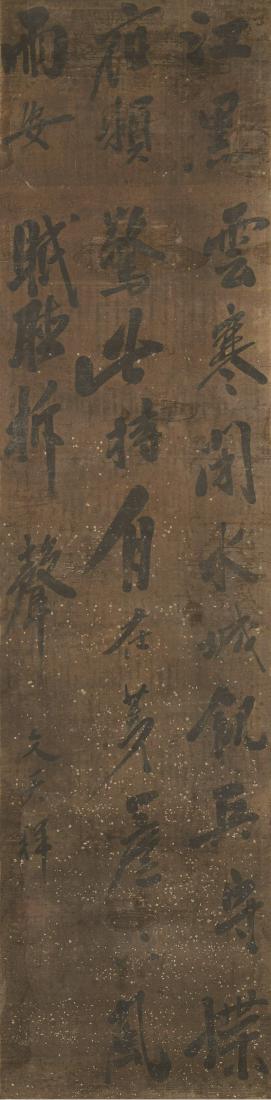 江黑雲寒閉水城飢兵守堞
夜頻驚此時自在茅簷下風
雨安眠聽柝聲
文天祥